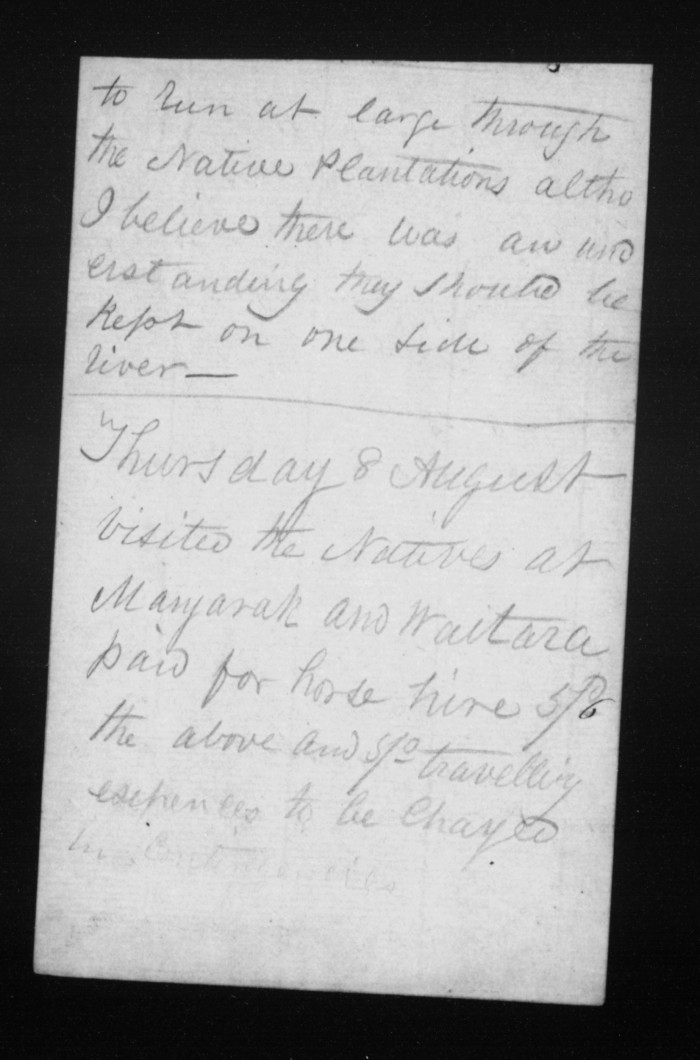 to run at large through
the Native Plantations altho
I believe there was an und
erstanding they should be
kept on one side of the
river—
Thursday 8 August
visited the Natives at
and Waitara
paid for horse hire
the above and 5/0 travelling
expences to be Charged
in Contingencies